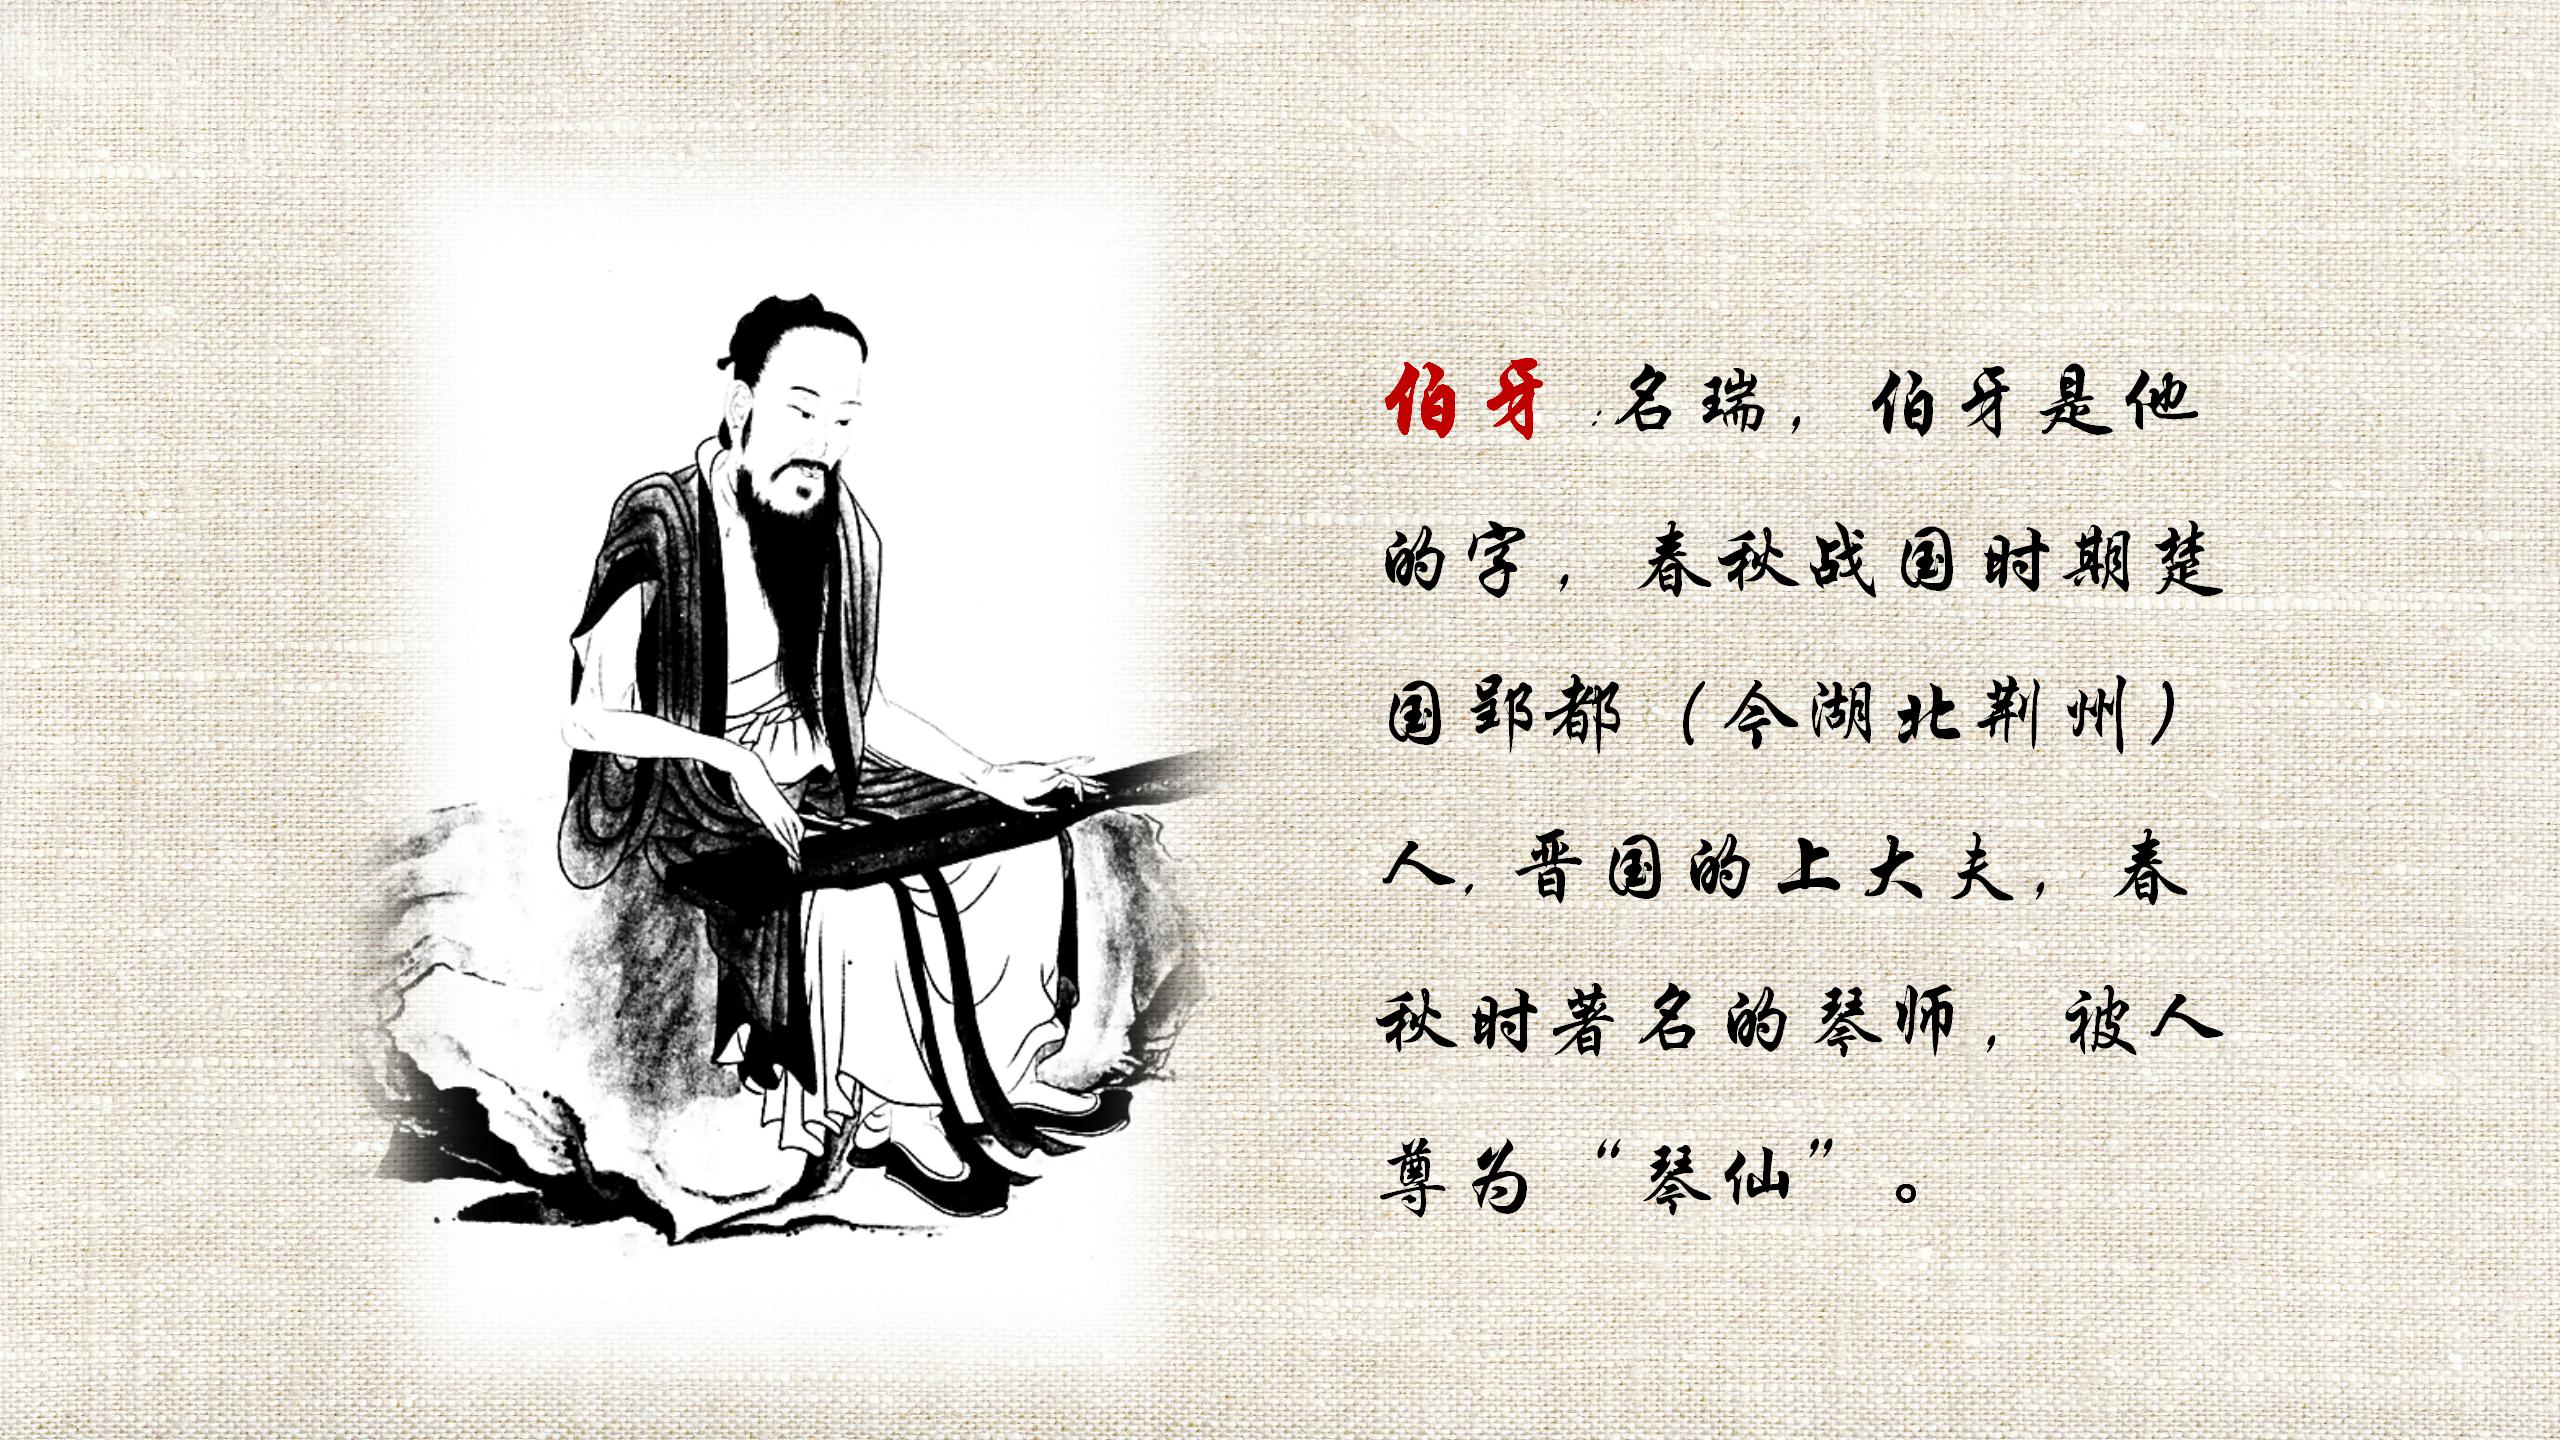 伯牙:名瑞，伯牙是他
的字，春秋战国时期楚
国郢都（今湖北荆州）
人,晋国的上大夫，春
秋时著名的琴师，被人
尊为“琴仙”。